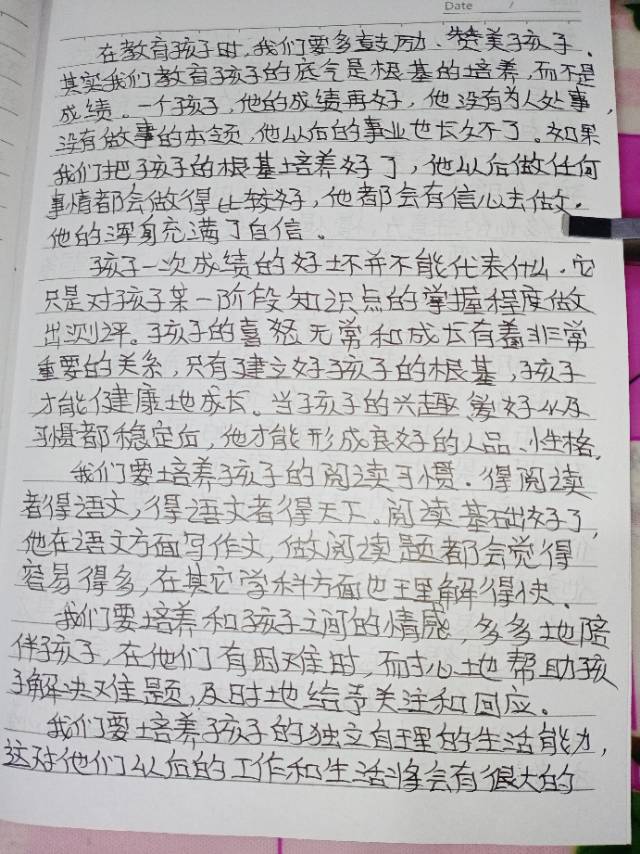 Date /
在教育孩子时,我们要多鼓励、赞美孩子。
其实我们教育孩子的底气是根基的培养,而不是
成绩。一个孩子,他的成绩再好,他没有为人处事,
没有做事的本领,他以后的事业也长久不了。如果
我们把孩子的根基培养好了,他以后做任何
事情都会做得比较好,他都会有信心去做。
他的浑身充满了自信。
孩子一次成绩的好坏并不能代表什么,它
只是对孩子某一阶段知识点的掌握程度做
出测评。孩子的喜怒无常和成长有着非常
重要的关系,只有建立好孩子的根基,孩子
才能健康地成长。当孩子的兴趣、爱好以及
习惯都稳定后,他才能形成良好的人品、性格。
我们要培养孩子的阅读习惯。得阅读
者得语文,得语文者得天下。阅读基础好了,
他在语文方面写作文,做阅读题都会觉得
容易得多,在其它学科方面也理解得快。
我们要培养和孩子之间的情感,多多地陪
伴孩子,在他们有困难时,耐心地帮助孩
子解决难题,及时地给予关注和回应。
我们要培养孩子的独立自理的生活能力,
这对他们以后的工作和生活将会有很大的